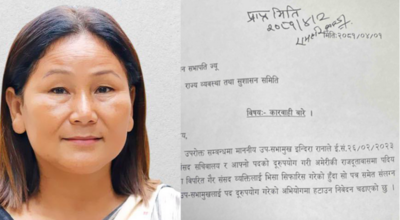 प्राप्त मिति
२०८१/४/२
मिति:२०८१/०४/०१
न सभापति ज्यू
राज्य व्यवस्था तथा सुशासन समिति
विषय:- कारबाही बारे ।
उपरोक्त सम्बन्धमा माननीय उप-सभामुख इन्दिरा रानाले ई.सं.२६/०२/२०२३
संसद सचिवालय र आफ्नो पदको दुरुपयोग गरी अमेरिकी राजदूतावासमा
विपरित गैर संसद व्यक्तिलाई भिसा सिफारिस गरेको हुँदा सो पत्र समेत संलग्न
उप-सभामुखलाई पद दुरुपयोग गरेको अभियोगमा हटाउन निवेदन चढाएको छु ।